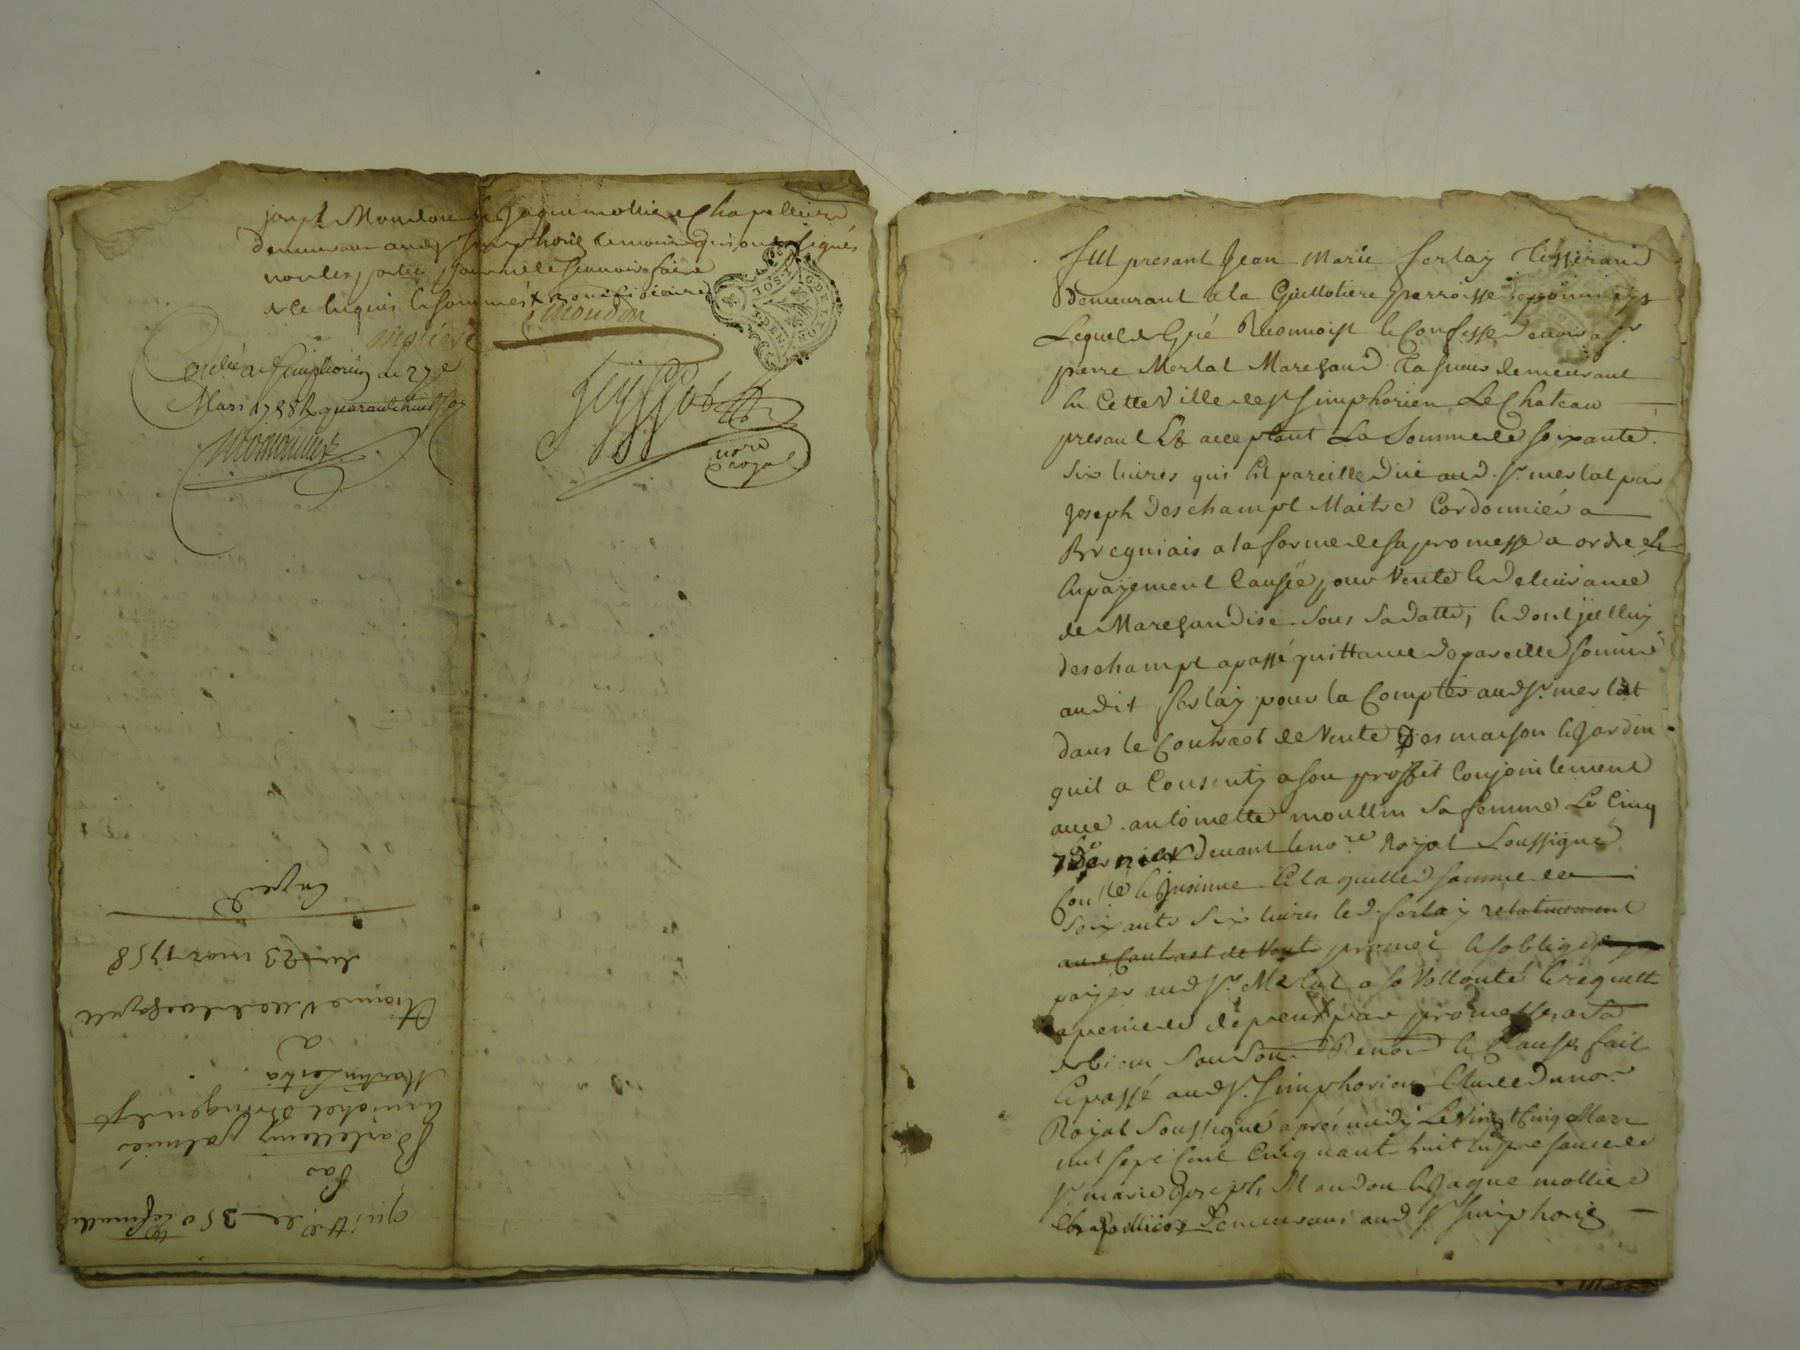 joseph Mondon & Jaque mollière Chapelliers
demeurant aud St Simphorien temoins qui ont signés
non les parties pour ne le sçavoir faire
de ce requis & sommés
mondon
moliére
Con.lé a St Simphorien le 27e
Mars 1758 R quarante huit sols
no.re
royal
quitt.ce de 350
Par
Bartellemy palmier
a michel
Martin
a
du 23 mars 1758
Expedié
Fut presant Jean Marie ferlay tisserand
demeurant a la Guillotiere parroisse de pommeys
Lequel de Gré Reconnoist & Confesse devoir a Sr.
pierre Merlat Marchand demeurant
en Cette Ville de St Simphorien Le Chateau
presant Et acceptant La Somme de soixante
six livres qui Est pareille due aud. Sr. merlat par
Joseph Deschampt Maitre Cordonnier a
a la forme de sa promesse a ordre &
en payement Causée pour Vente & Delivrance
de Marchandise Sous Sa datte, & dont jcelluy
deschampt a passé quittance de pareille somme
audit ferlay pour la Compter aud Sr. merlat
dans le Contract de Vente Des maison & Jardin
quil a Consenty a son proffit Conjointement
avec antoinette moullin Sa femme Le Cinq
dernier devant le no.re Royal Soussigné
Con.lé & Insinué Et laquelle somme de
Soixante Six livres led. ferlay relativement
aud Contrast de Vente promet & soblige
payer aud Sr. Merlat a sa Vollonté & requette
a peine de depens par promesse a Sa
Renon & Clause fait
& passé aud St. Simphorien Etude du no.re
Royal Soussigné aprés midy Le Vingt Cinq Mars
mil sept Cent Cinquante huit en presance de
Sr. marie Joseph Mondon & Jaque mollière
Chapelliers Demeurans aud St Simphorien